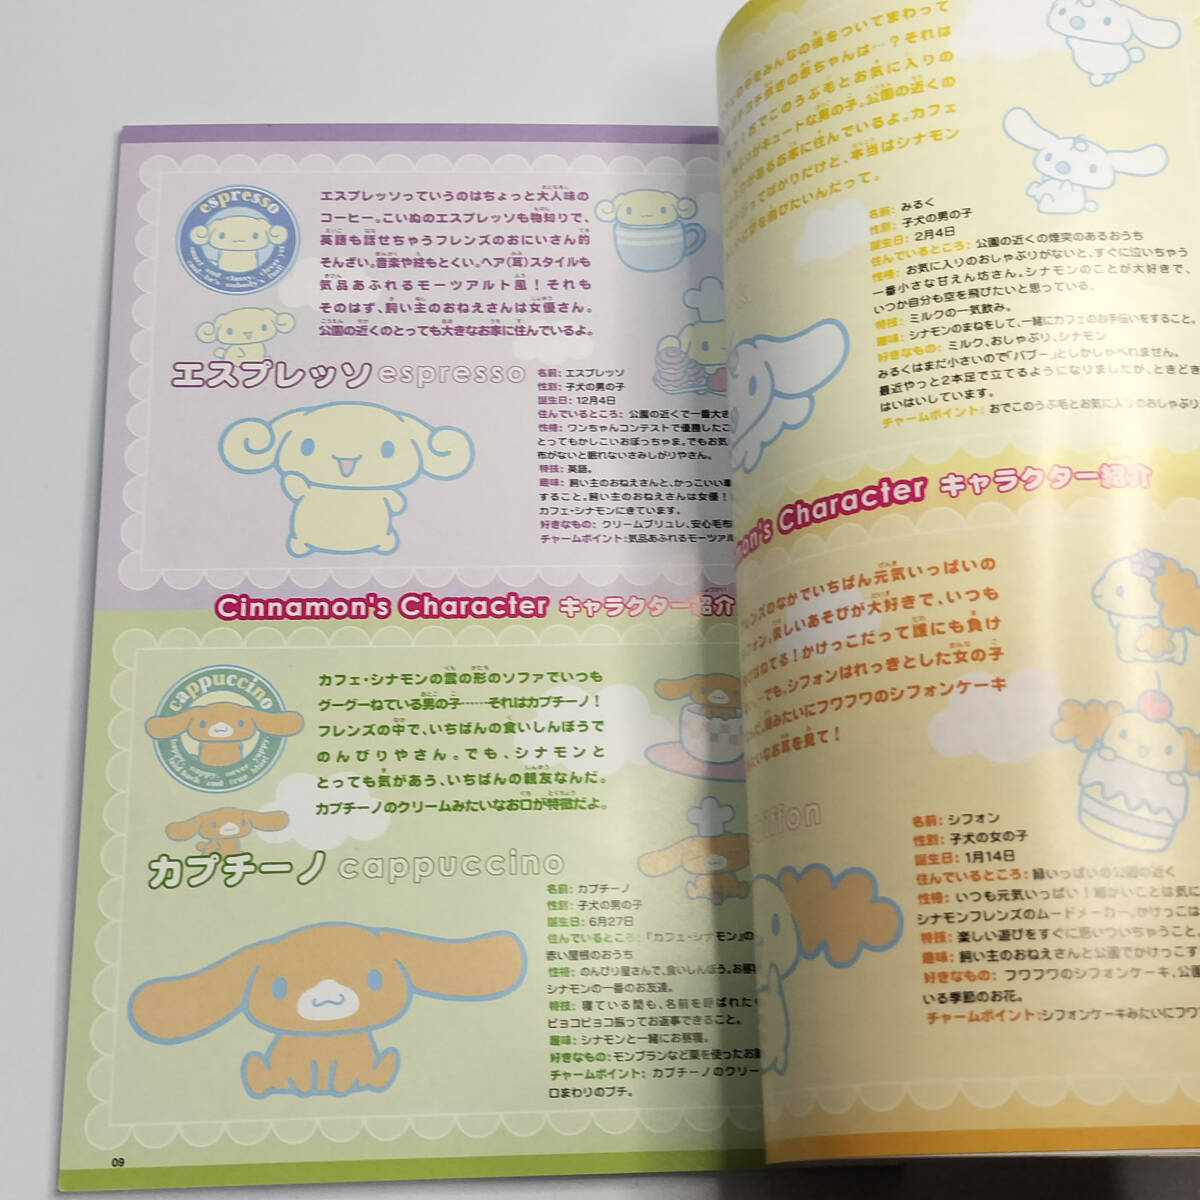 espresso
エスプレッソっていうのはちょっと大人味の
コーヒー。こいぬのエスプレッソも物知りで、
英語も話せちゃうフレンズのおにいさん的
そんざい。音楽や絵もとくい。ヘア(耳)スタイルも
気品あふれるモーツアルト風!それも
そのはず、飼い主のおねえさんは女優さん。
公園の近くのとっても大きなお家に住んでいるよ。
エスプレッソ espresso
名前: エスプレッソ
性別: 子犬の男の子
誕生日: 12月4日
住んでいるところ: 公園の近くで一番大き
性格: ワンちゃんコンテストで優勝したこ
とってもかしこいおぼっちゃま。でもお気
布がないと眠れないさみしがりやさん。
特技: 英語。
趣味: 飼い主のおねえさんと、かっこいい車
すること。飼い主のおねえさんは女優!
カフェ・シナモンにきています。
好きなもの: クリームブリュレ、安心毛布
チャームポイント:気品あふれるモーツアル
Cinnamon's Character キャラクター紹介
cappuccino
カフェ・シナモンの雲の形のソファでいつも
グーグーねている男の子……それはカプチーノ!
フレンズの中で、いちばんの食いしんぼうで
のんびりやさん。でも、シナモンと
とっても気があう、いちばんの親友なんだ。
カプチーノのクリームみたいなお口が特徴だよ。
カプチーノ cappuccino
名前: カプチーノ
性別: 子犬の男の子
誕生日: 6月27日
住んでいるところ: 「カフェ・シナモン」の
赤い屋根のおうち
性格: のんびり屋さんで、食いしんぼう。お昼寝
シナモンの一番のお友達。
特技: 寝ている間も、名前を呼ばれたら
ピョコピョコ振ってお返事できること。
趣味: シナモンと一緒にお昼寝。
好きなもの:モンブランなど栗を使ったお菓
チャームポイント: カプチーノのクリー
口まわりのブチ。
09
の中をみんなの後をついてまわって
ヨチ歩きの赤ちゃんは…?それは
!おでこのうぶ毛とお気に入りの
がキュートな男の子。公園の近くの
があるお家に住んでいるよ。カフェ
てばかりだけど、本当はシナモン
を飛びたいんだって。
名前: みるく
性別: 子犬の男の子
誕生日: 2月4日
住んでいるところ: 公園の近くの煙突のあるおうち
性格: お気に入りのおしゃぶりがないと、すぐに泣いちゃう
一番小さな甘えん坊さん。シナモンのことが大好きで、
いつか自分も空を飛びたいと思っている。
特技: ミルクの一気飲み。
趣味: シナモンのまねをして、一緒にカフェのお手伝いをすること。
好きなもの: ミルク、おしゃぶり、シナモン
みるくはまだ小さいので「バブー」としかしゃべれません。
最近やっと2本足で立てるようになりましたが、ときどき
はいはいしています。
チャームポイント: おでこのうぶ毛とお気に入りのおしゃぶり
mon's Character キャラクター紹介
フレンズのなかでいちばん元気いっぱいの
シフォン。楽しいあそびが大好きで、いつも
ねてる!かけっこだって誰にも負け
…でも、シフォンはれっきとした女の子
みたいにフワフワのシフォンケーキ
みたいなお耳を見て!
iffon
名前: シフォン
性別: 子犬の女の子
誕生日: 1月14日
住んでいるところ: 緑いっぱいの公園の近く
性格: いつも元気いっぱい!細かいことは気に
シナモンフレンズのムードメーカー。かけっこは
特技: 楽しい遊びをすぐに思いついちゃうこと。
趣味: 飼い主のおねえさんと公園でかけっこす
好きなもの: フワフワのシフォンケーキ、公園
いる季節のお花。
チャームポイント:シフォンケーキみたいにフワ